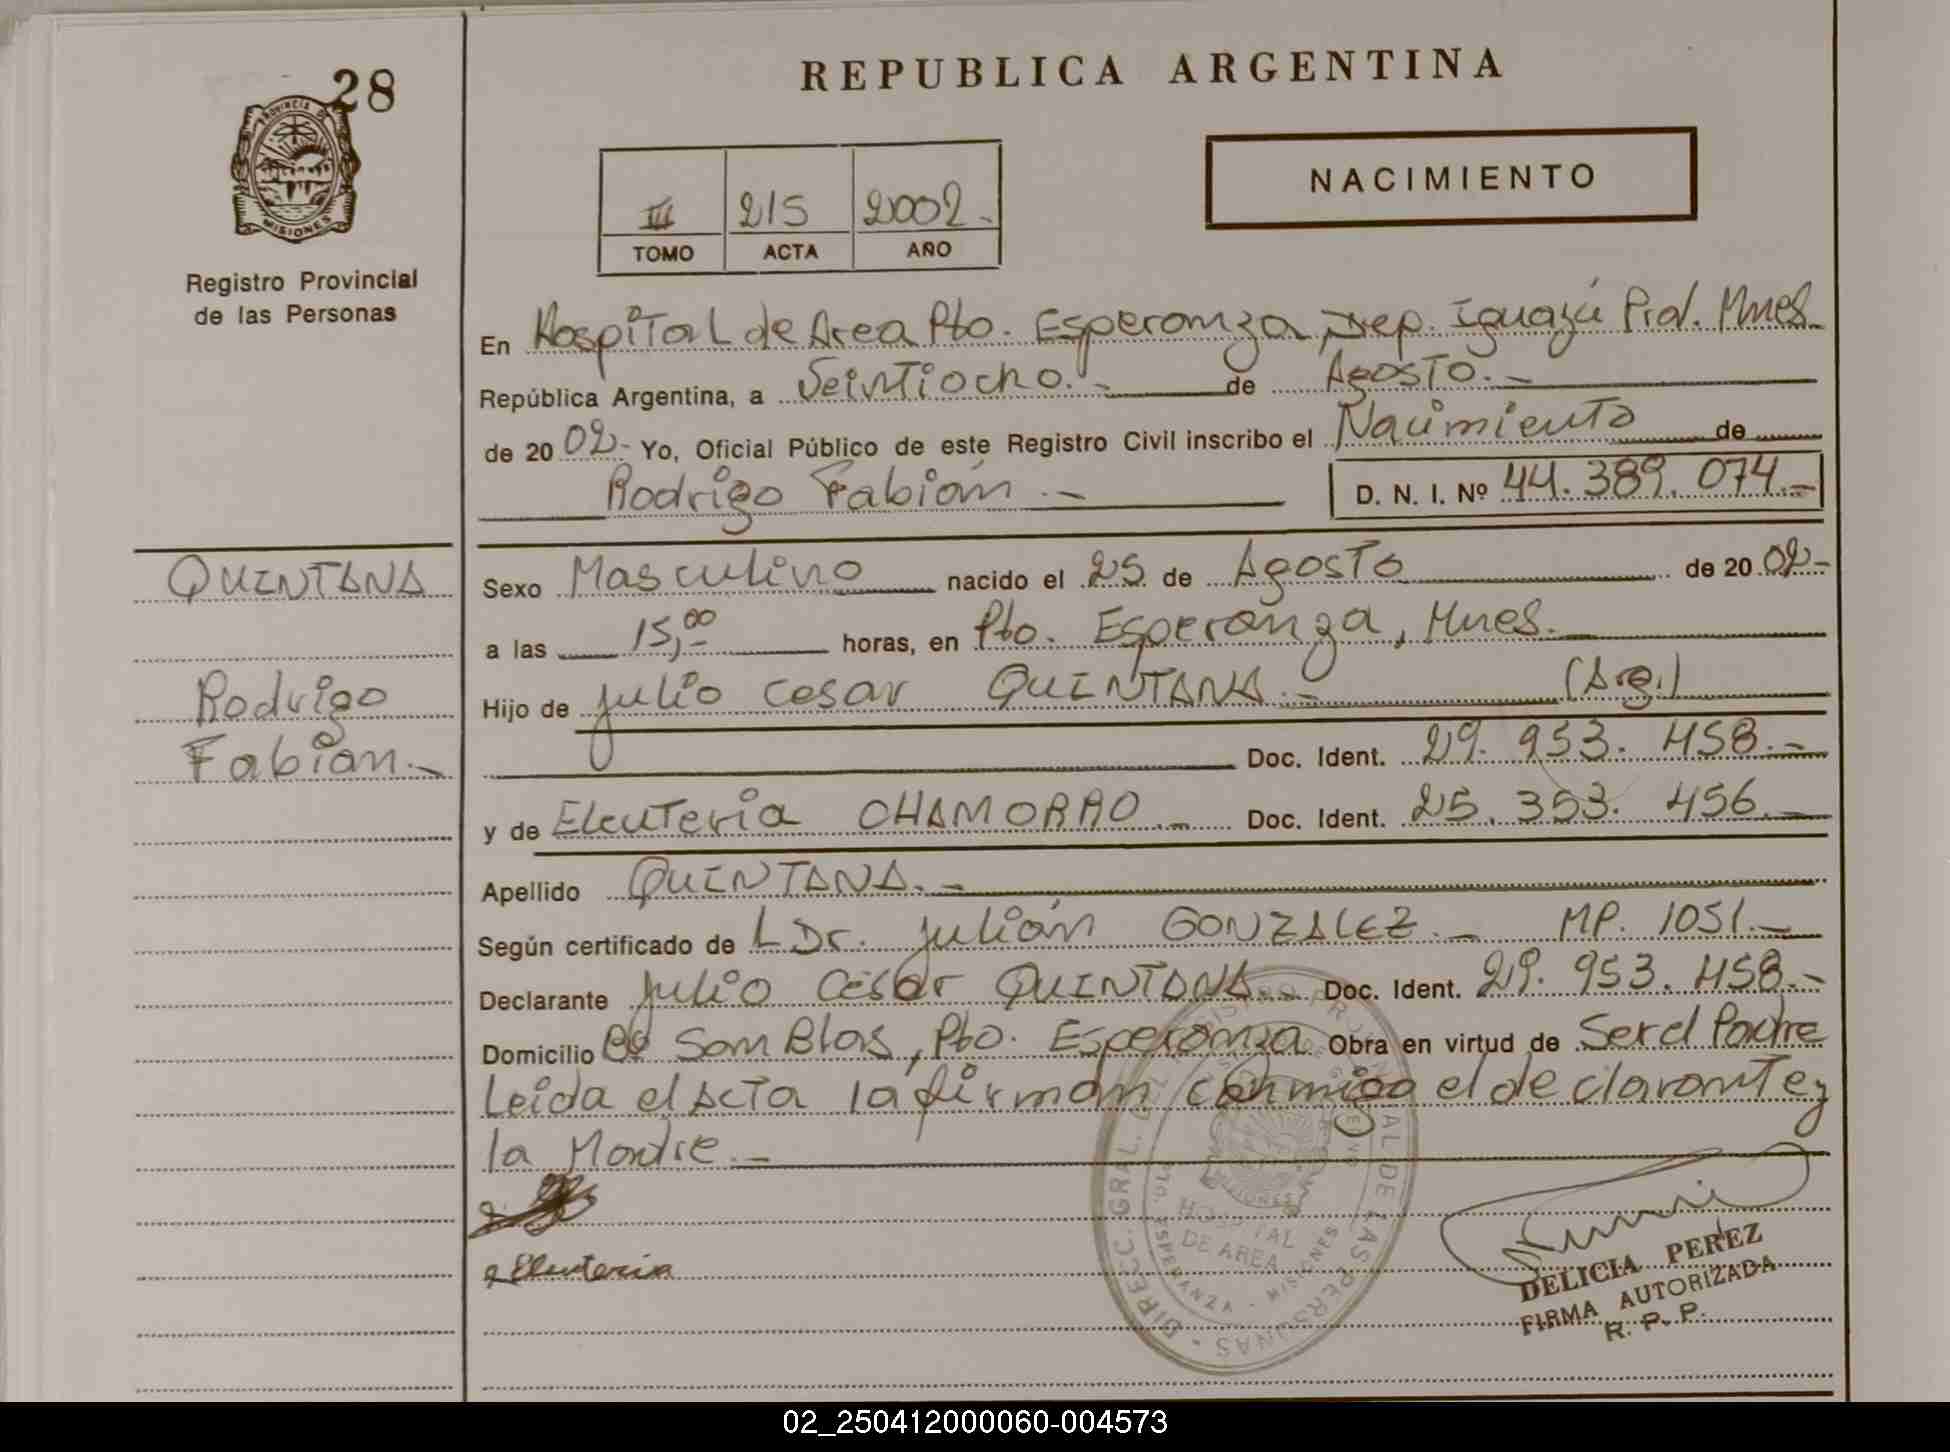 28
PROVINCIA DE
MISIONES
Registro Provincial
de las Personas
REPUBLICA ARGENTINA
NACIMIENTO
III 215 2002.-
TOMO ACTA AÑO
En Hospital de Area Pto. Esperanza, Dep. Iguazú Pid. Mnes.
República Argentina, a Veintiocho.- de Agosto.-
de 20 02- Yo, Oficial Público de este Registro Civil inscribo el Nacimiento de
Rodrigo Fabián.- D. N. I. Nº 44.389.074.-
QUINTANA
Rodrigo
Fabian.-
Sexo Masculino nacido el 25 de Agosto de 20 02-
a las 15,00- horas, en Pto. Esperanza, Mnes.-
Hijo de Julio Cesar QUINTANA.- (Arg.)
Doc. Ident. 29.953.458.-
y de Eleuteria CHAMORRO.- Doc. Ident. 25.353.456.-
Apellido QUINTANA.-
Según certificado de Dr. Julián GONZALEZ.- MP. 1051.-
Declarante Julio César QUINTANA.- Doc. Ident. 29.953.458.-
Domicilio Bº San Blas, Pto. Esperanza Obra en virtud de Ser el Padre
Leida el Acta la firman conmigo el declarante y
la Madre.-
Eleuteria
DIRECC. GRAL. DEL REGISTRO PROVINCIAL DE LAS PERSONAS
HOSPITAL
DE AREA
ESPERANZA - MISIONES
DELICIA PEREZ
FIRMA AUTORIZADA
R. P. P.
02_250412000060-004573